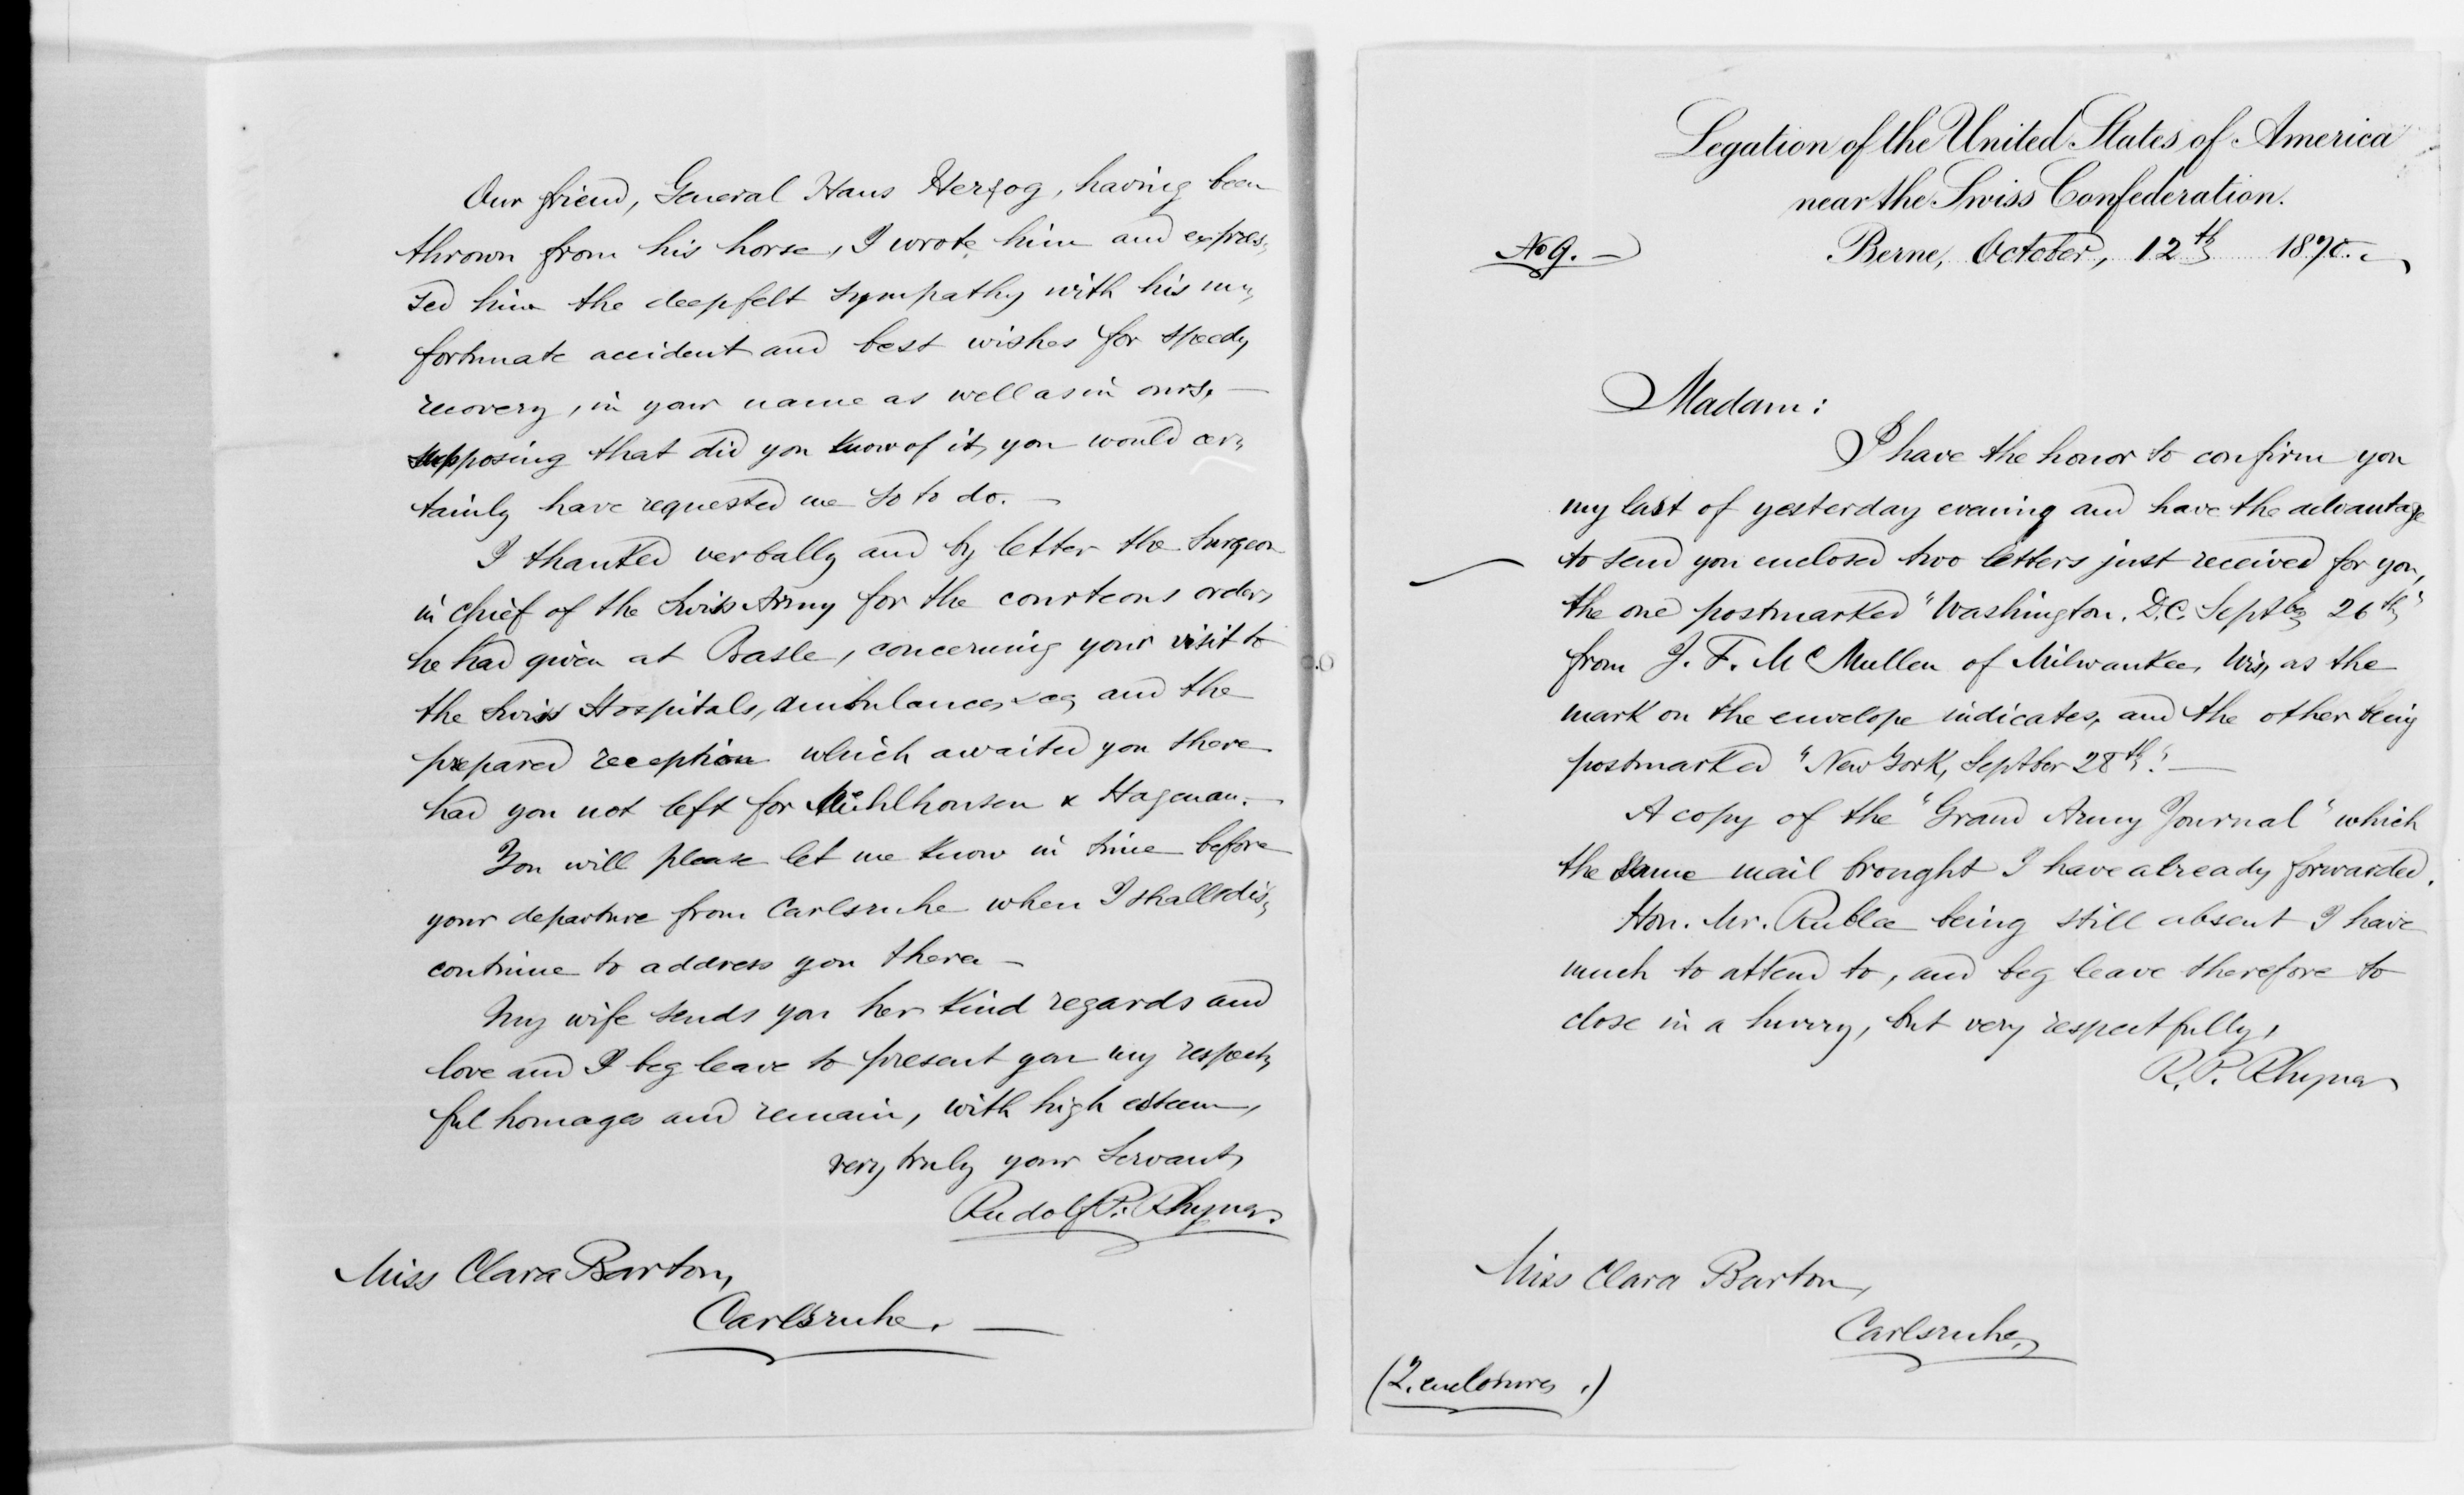 Our friend, General Hans Herzog, having been
thrown from his horse, I wrote him and expres-
sed him the deepfelt sympathy with his un-
fortunate accident and best wishes for speedy
recovery, in your name as well as in ours, —
supposing that did you know of it, you would cer-
tainly have requested me so to do. —
I thanked verbally and by letter the Surgeon
in chief of the Swiss Army for the courteous orders
he had given at Basle, concerning your visit to
the Swiss Hospitals, ambulances &c, and the
prepared reception which awaited you there
had you not left for Mühlhousen & Hagenau. —
You will please let me know in time before
your departure from Carlsruhe when I shall dis-
continue to address you there —
My wife sends you her kind regards and
love and I beg leave to present you my respect-
ful homages and remain, with high esteem,
very truly your Servant,
Rudolf P. Rhyner.
Miss Clara Barton,
Carlsruhe. —
Legation of the United States of America
near the Swiss Confederation.
No 9. — Berne, October, 12th 1870.
Madam:
I have the honor to confirm you
my last of yesterday evening and have the advantage
to send you enclosed two letters just received for you,
the one postmarked "Washington. D.C. Septber 26th"
from J. F. McMullen of Milwaukee, Wis, as the
mark on the envelope indicates, and the other being
postmarked "New York, Septber 28th". —
A copy of the "Grand Army Journal" which
the same mail brought I have already forwarded.
Hon. Mr. Rublee being still absent I have
much to attend to, and beg leave therefore to
close in a hurry, but very respectfully,
R. P. Rhyner
Miss Clara Barton,
Carlsruhe,
(2. enclosures.)